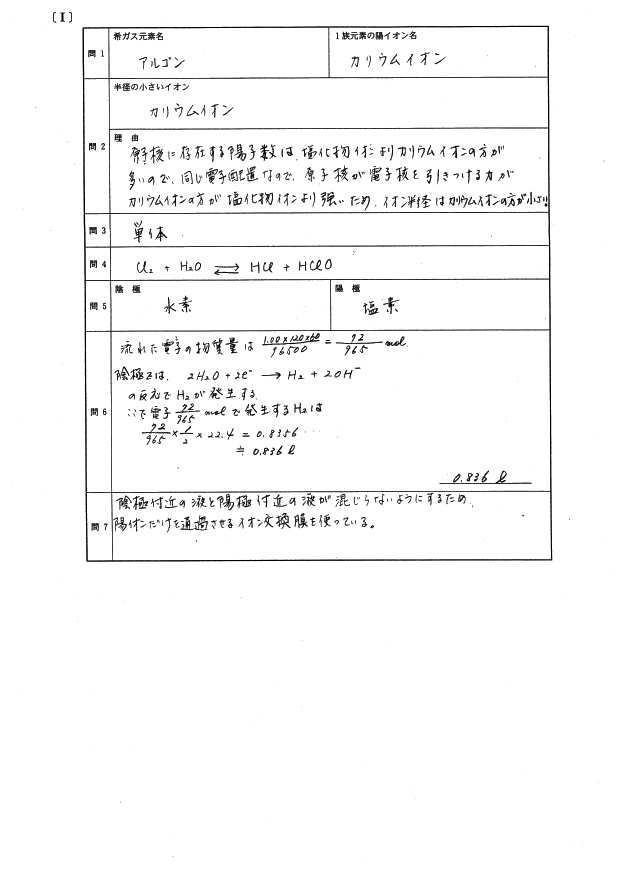 〔Ⅰ〕
問1
希ガス元素名
アルゴン
1族元素の陽イオン名
カリウムイオン
問2
半径の小さいイオン
カリウムイオン
理由
原子核に存在する陽子数は、塩化物イオンよりカリウムイオンの方が
多いので、同じ電子配置なので、原子核が電子核を引きつける力が
カリウムイオンの方が塩化物イオンより強いため、イオン半径はカリウムイオンの方が小さい
問3
単体
問4
Cl₂ + H₂O ⇄ HCl + HClO
問5
陰極
水素
陽極
塩素
問6
流れた電子の物質量は 1.00×120×60/96500 = 72/965 mol.
陰極では、 2H₂O + 2e⁻ → H₂ + 2OH⁻
の反応でH₂が発生する。
ここで電子 72/965 mol で発生するH₂は
72/965 × 1/2 × 22.4 = 0.8356…
≒ 0.836 ℓ
0.836 ℓ
問7
陰極付近の液と陽極付近の液が混じらないようにするため、
陽イオンだけを通過させるイオン交換膜を使っている。